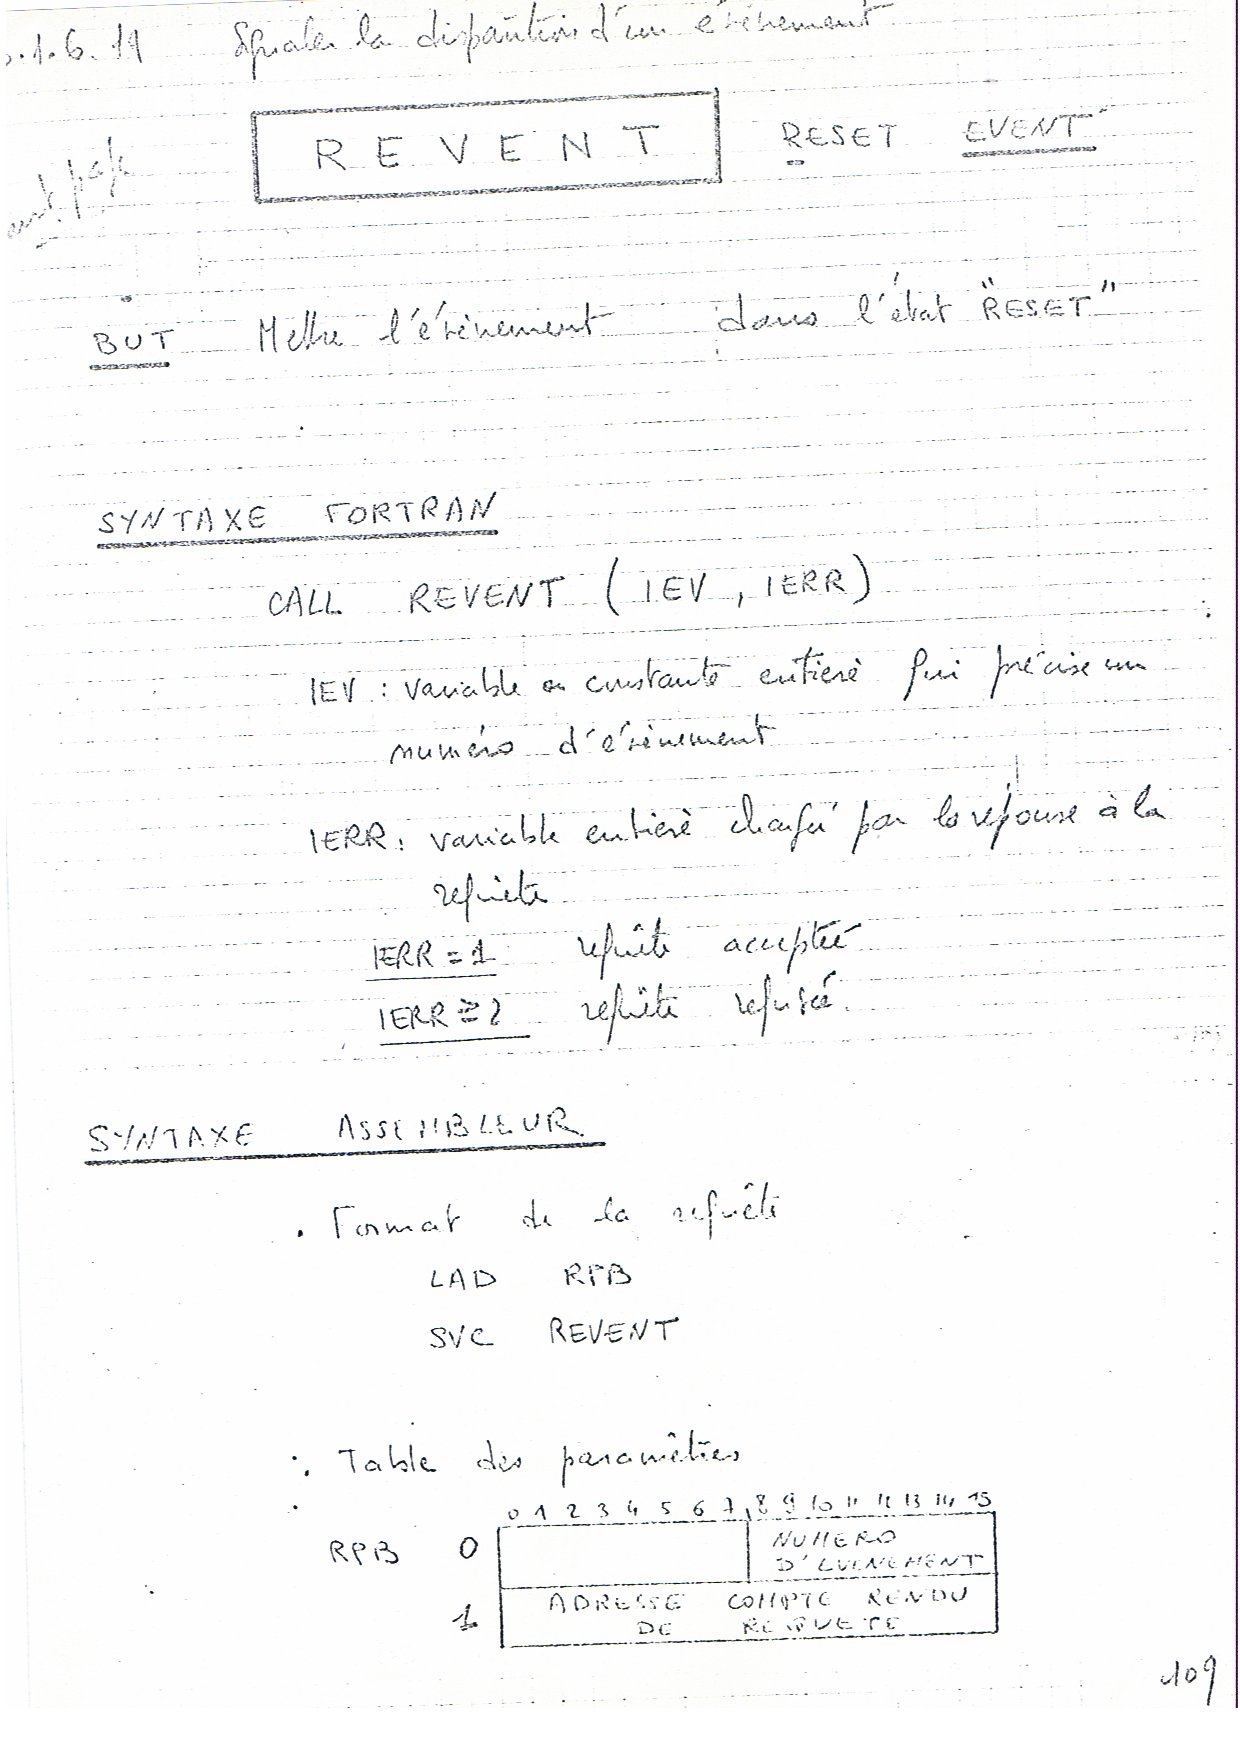 .1.6.11 Signaler la disparition d'un évènement
REVENT RESET EVENT
page
BUT Mettre l'évènement dans l'état "RESET"
SYNTAXE FORTRAN
CALL REVENT ( IEV , IERR )
IEV : variable ou constante entière qui précise un
numéro d'évènement
IERR : variable entière chargée par la réponse à la
requête
IERR = 1 requête acceptée
IERR ≥ 2 requête refusée.
SYNTAXE ASSEMBLEUR
. Format de la requête
LAD RPB
SVC REVENT
. Table des paramètres
0 1 2 3 4 5 6 7 8 9 10 11 12 13 14 15
RPB 0 NUMERO
D'EVENEMENT
1 ADRESSE COMPTE RENDU
DE REQUETE
109